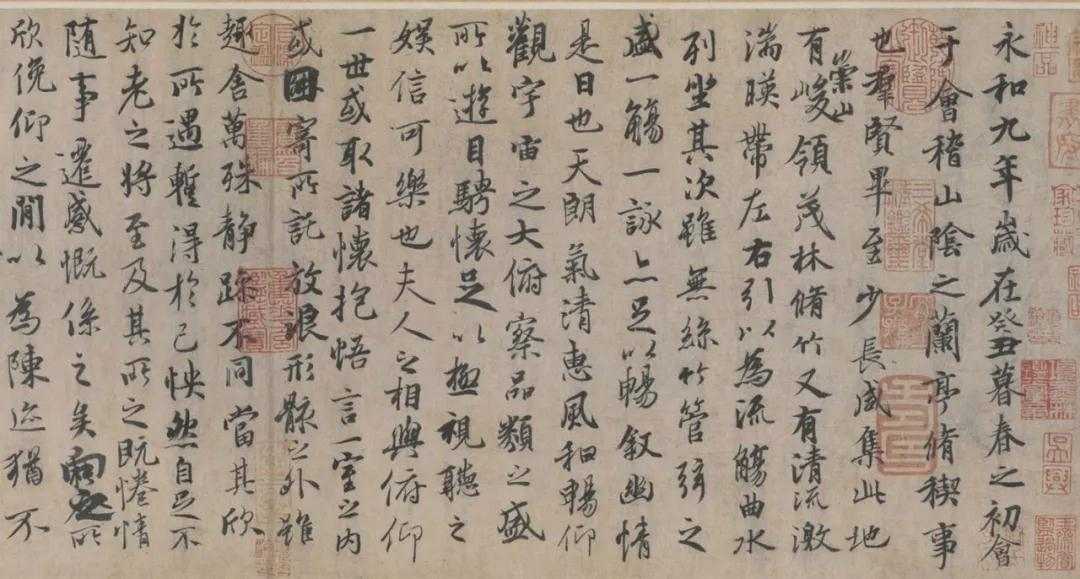 永和九年歲在癸丑暮春之初會
于會稽山陰之蘭亭脩稧事
也羣賢畢至少長咸集此地
有崇山峻領茂林脩竹又有清流激
湍暎帶左右引以為流觴曲水
列坐其次雖無絲竹管弦之
盛一觴一詠亦足以暢敘幽情
是日也天朗氣清惠風和暢仰
觀宇宙之大俯察品類之盛
所以遊目騁懷足以極視聽之
娛信可樂也夫人之相與俯仰
一世或取諸懷抱悟言一室之內
或因寄所託放浪形骸之外雖
趣舍萬殊靜躁不同當其欣
於所遇暫得於己怏然自足不
知老之將至及其所之既惓情
隨事遷感慨係之矣向之所
欣俛仰之閒以為陳迹猶不
神品